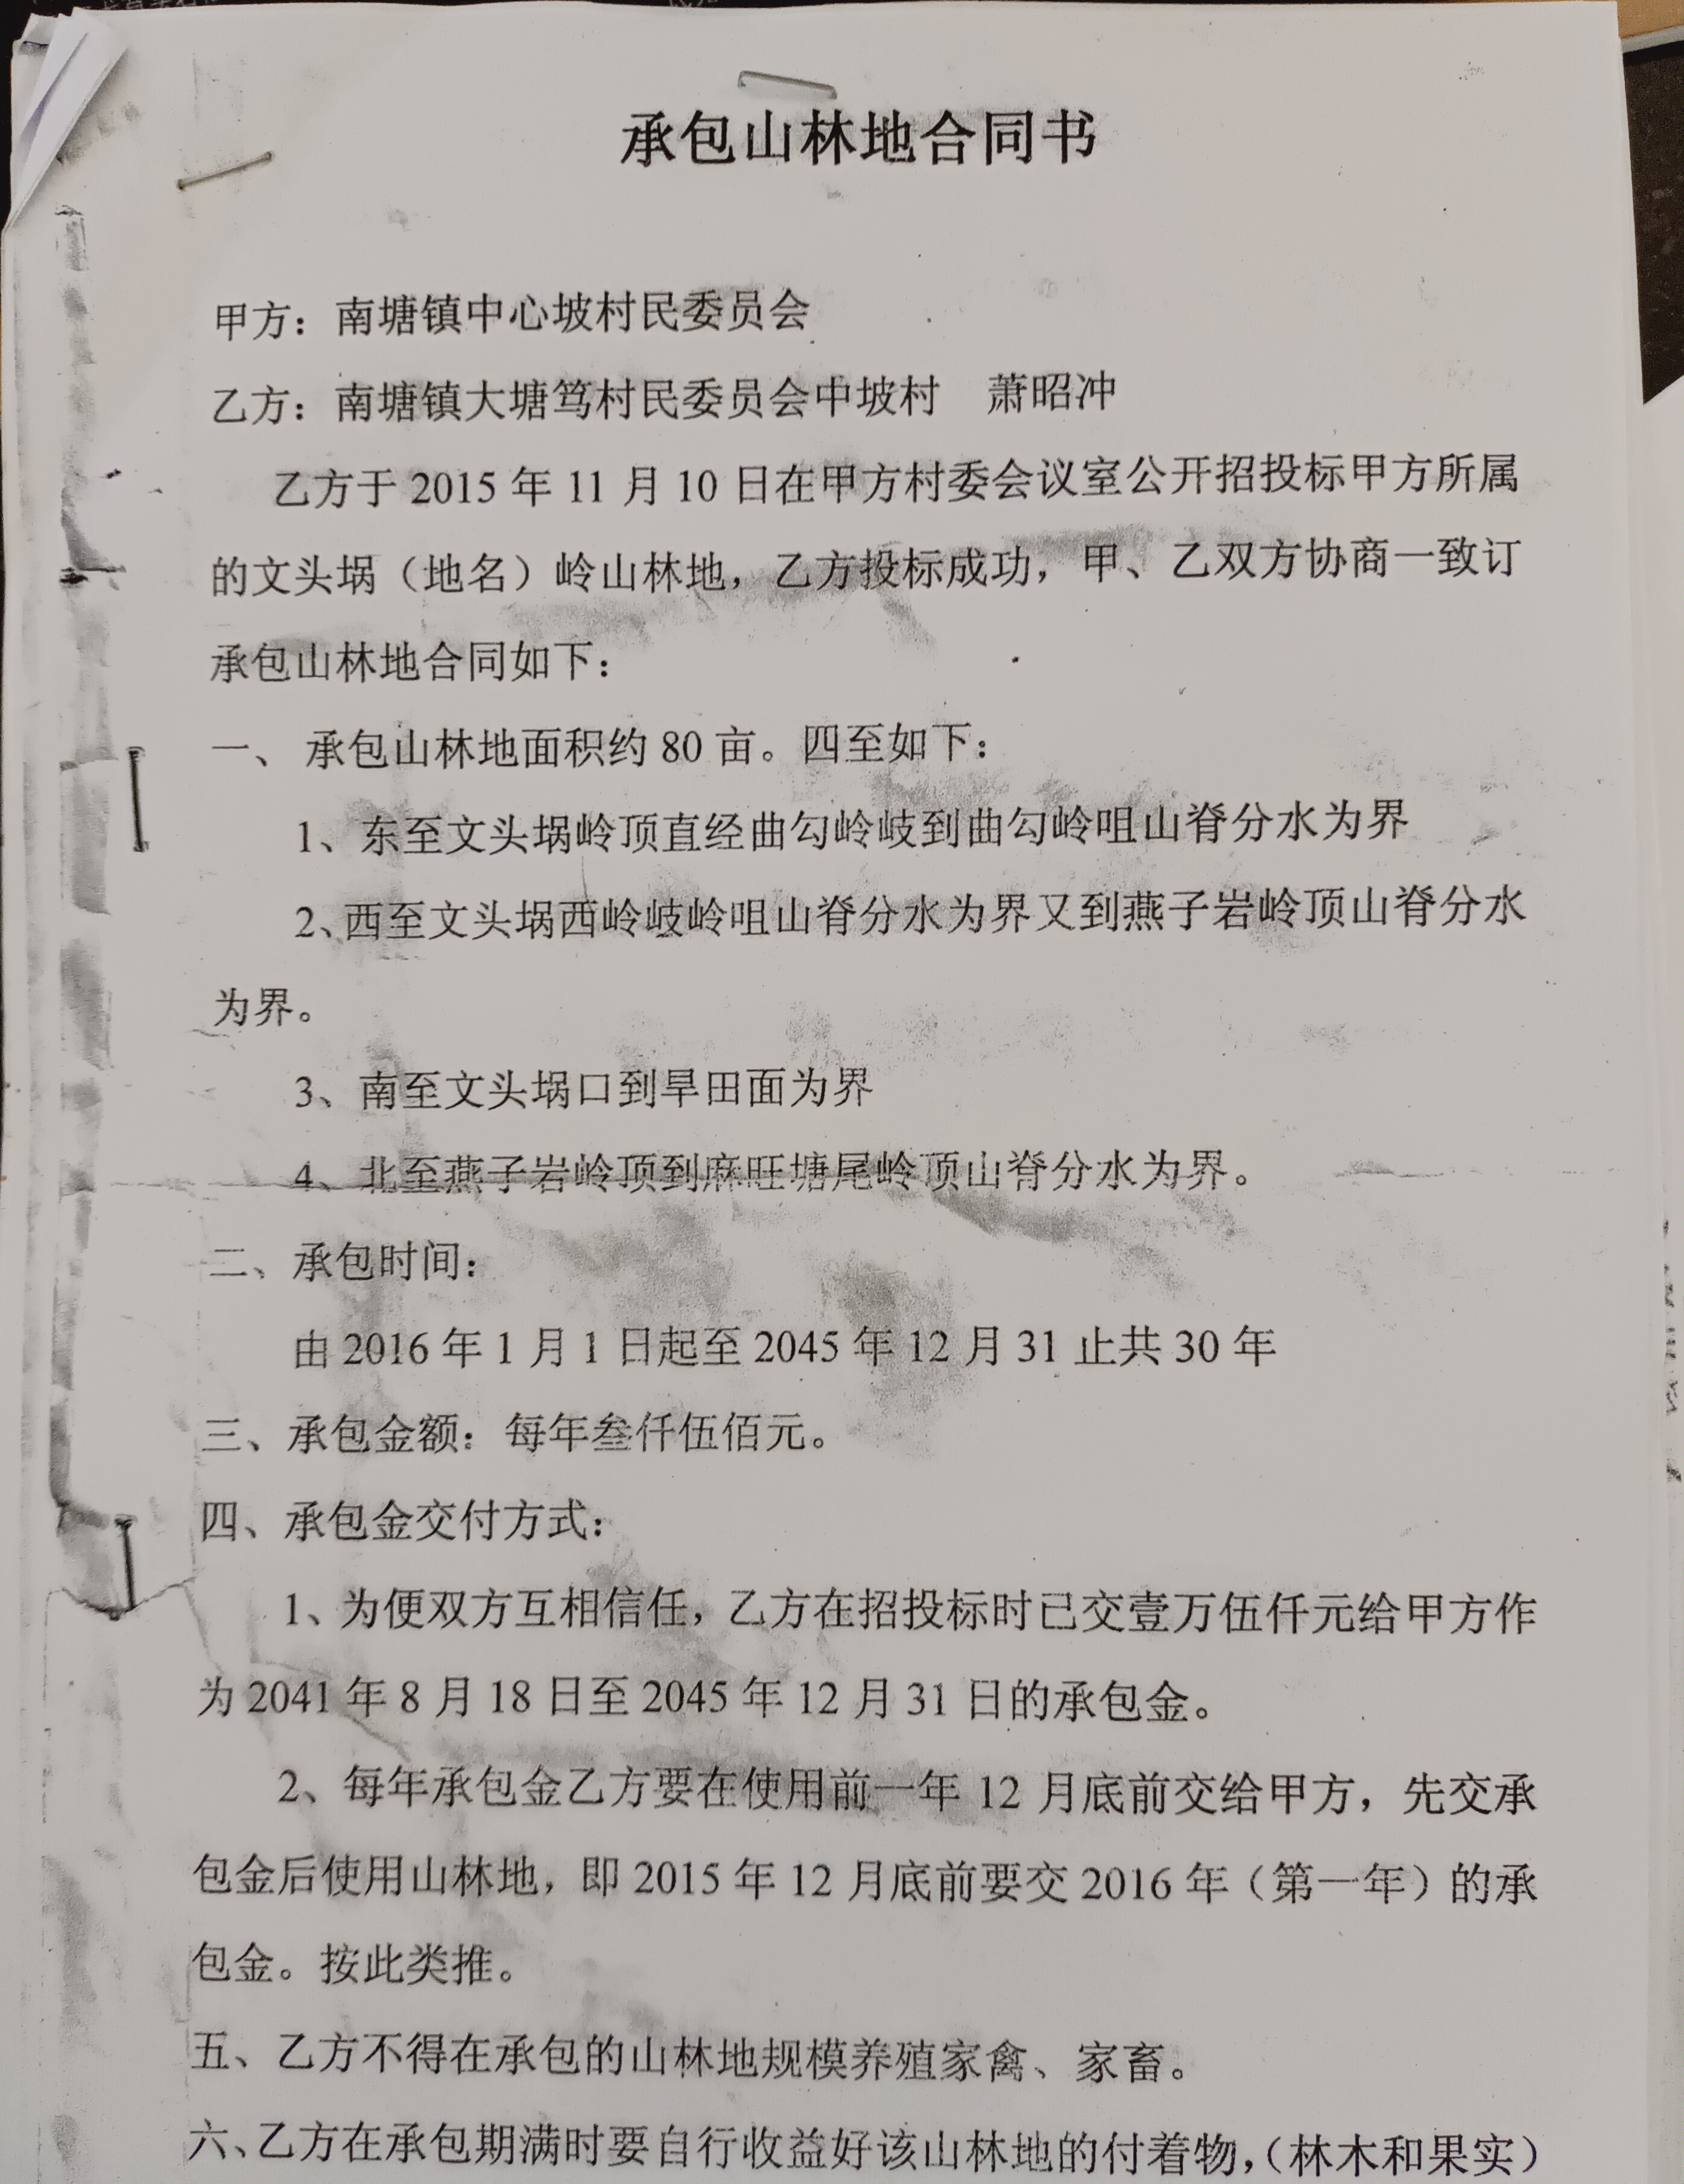 承包山林地合同书
甲方：南塘镇中心坡村民委员会
乙方：南塘镇大塘笃村民委员会中坡村 萧昭冲
乙方于 2015 年 11 月 10 日在甲方村委会议室公开招投标甲方所属
的文头埚（地名）岭山林地，乙方投标成功，甲、乙双方协商一致订
承包山林地合同如下：
一、 承包山林地面积约 80 亩。四至如下：
1、东至文头埚岭顶直经曲勾岭岐到曲勾岭咀山脊分水为界
2、西至文头埚西岭岐岭咀山脊分水为界又到燕子岩岭顶山脊分水
为界。
3、南至文头埚口到旱田面为界
4、北至燕子岩岭顶到麻旺塘尾岭顶山脊分水为界。
二、承包时间：
由 2016 年 1 月 1 日起至 2045 年 12 月 31 止共 30 年
三、承包金额：每年叁仟伍佰元。
四、承包金交付方式：
1、为便双方互相信任，乙方在招投标时已交壹万伍仟元给甲方作
为 2041 年 8 月 18 日至 2045 年 12 月 31 日的承包金。
2、每年承包金乙方要在使用前一年 12 月底前交给甲方，先交承
包金后使用山林地，即 2015 年 12 月底前要交 2016 年（第一年）的承
包金。按此类推。
五、乙方不得在承包的山林地规模养殖家禽、家畜。
六、乙方在承包期满时要自行收益好该山林地的付着物，（林木和果实）